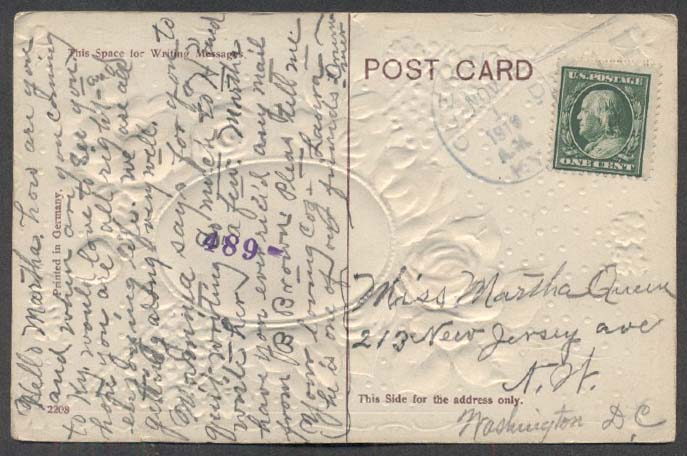 This Space for Writing Messages
POST CARD
U.S. POSTAGE
ONE CENT
NOV
1
A.M.
KY.
Printed in Germany.
2208
489
Hello Martha. how are you
and when are you coming
to Ky would love to see you
hope you are all right - and
enjoying life. we are all
getting along very well.
Mamma says for you to
quit writing so much to H. P. and
write her a few. Martha
have you ever rec'd any mail
from B Browne Pleas tell me
Your loving Coz -
(he is one of our friends
Miss Martha Queen
213 New Jersey ave
N.W.
Washington D.C
This Side for the address only.